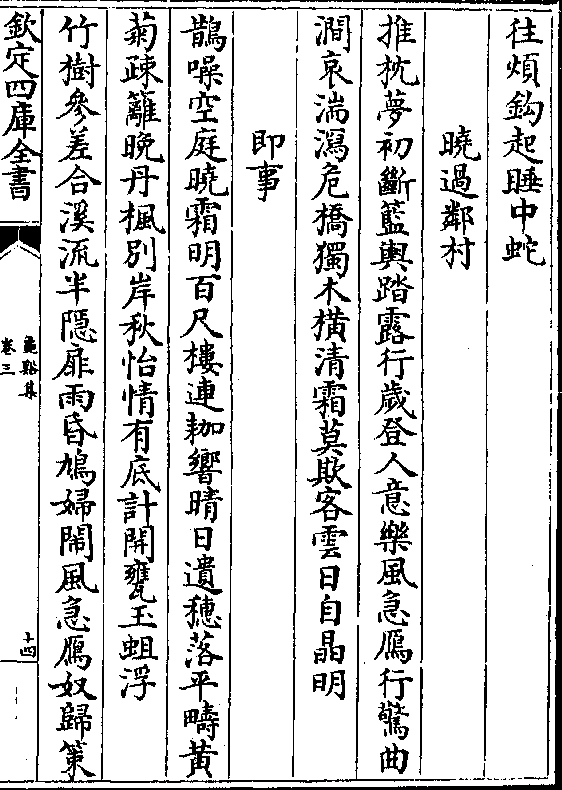 往煩鈎起睡中蛇
曉過鄰村
推枕夢初斷籃輿踏露行歲登人意樂風急鴈行驚曲
澗哀湍瀉危橋獨木橫清霜莫欺客雲日自晶明
即事
鵲噪空庭曉霜明百尺樓連耞響晴日遺穗落平疇黃
菊疎籬晚丹楓別岸秋怡情有底計開甕玉蛆浮
竹樹參差合溪流半隱扉雨昏鳩婦鬧風急鴈奴歸策
欽定四庫全書
龜谿集
卷三
十四